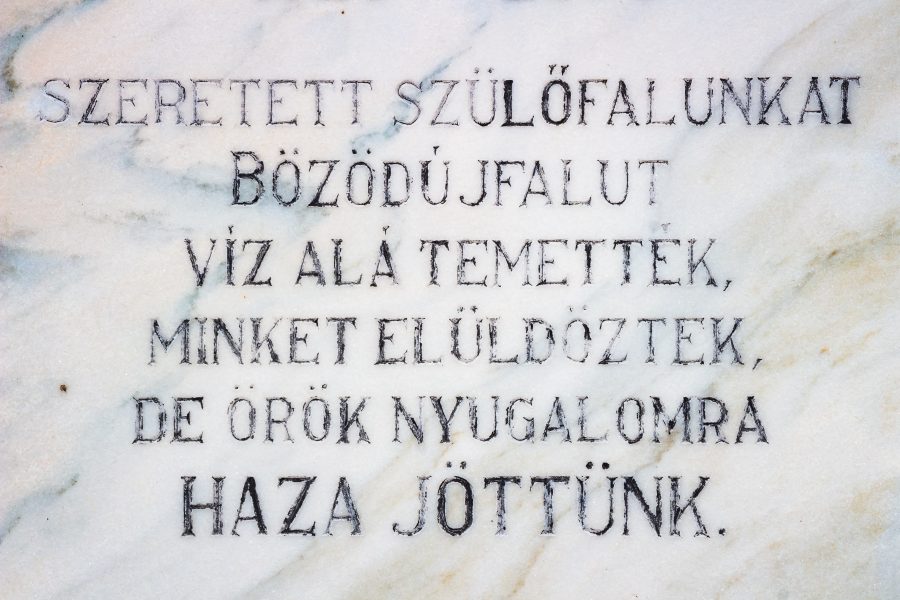 SZERETETT SZÜLŐFALUNKAT
BÖZÖDÚJFALUT
VÍZ ALÁ TEMETTÉK,
MINKET ELÜLDÖZTEK,
DE ÖRÖK NYUGALOMRA
HAZA JÖTTÜNK.